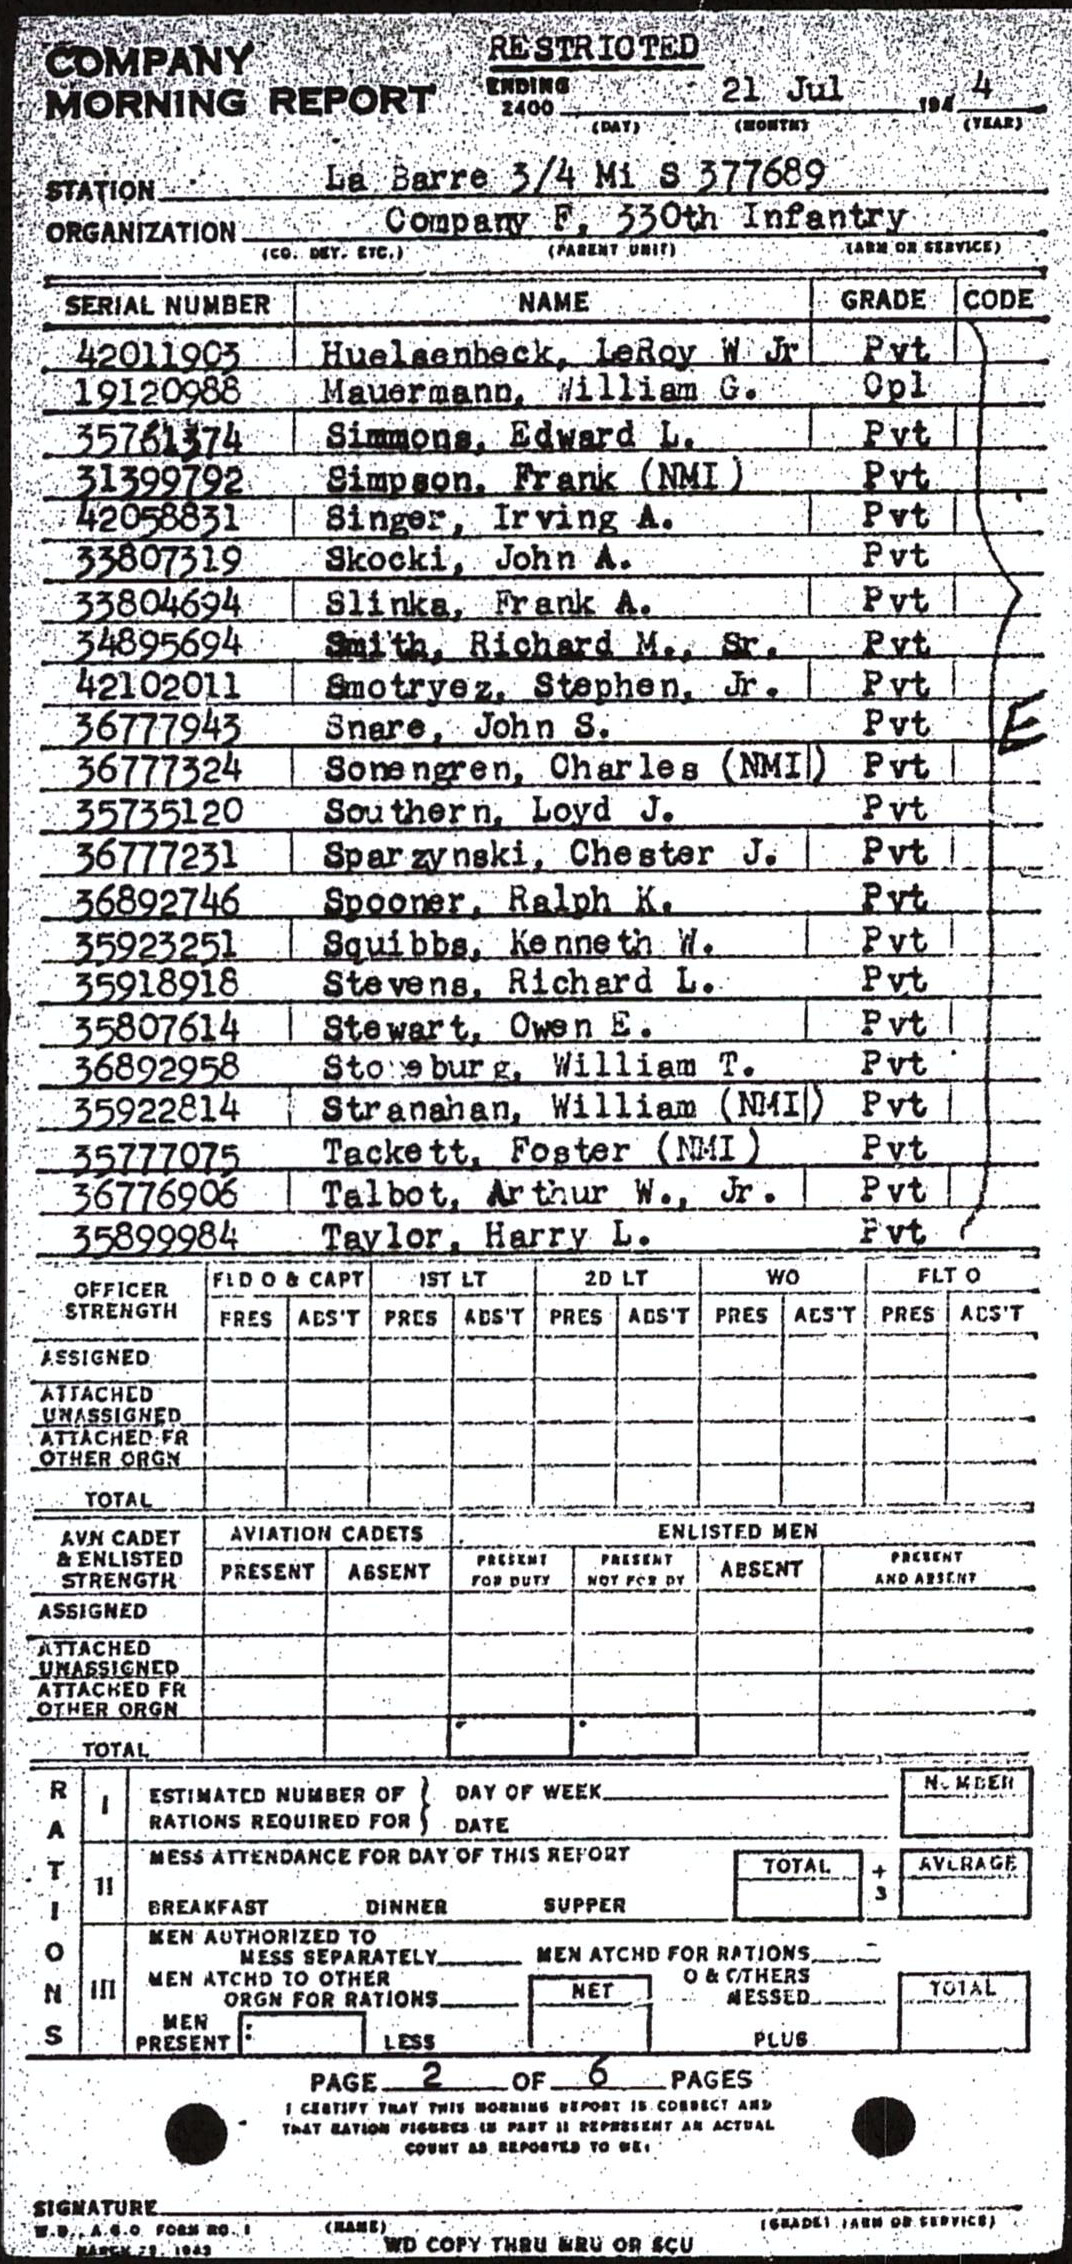 RESTRICTED
COMPANY
MORNING REPORT
ENDING
2400
21 Jul 194 4
(DAY) (MONTH) (YEAR)
STATION La Barre 3/4 Mi S 377689
ORGANIZATION Company F, 330th Infantry
(CO. DET. ETC.) (PARENT UNIT) (ARM OR SERVICE)
SERIAL NUMBER NAME GRADE CODE
42011903 Huelsenbeck, LeRoy W Jr Pvt
19120988 Mauermann, William G. Cpl
35761374 Simmons, Edward L. Pvt
31399792 Simpson, Frank (NMI) Pvt
42058831 Singer, Irving A. Pvt
33807319 Skocki, John A. Pvt
33804694 Slinka, Frank A. Pvt
34895694 Smith, Richard M., Sr. Pvt
42102011 Smotryez, Stephen, Jr. Pvt
36777943 Snare, John S. Pvt E
36777324 Sonengren, Charles (NMI) Pvt
35735120 Southern, Loyd J. Pvt
36777231 Sparzynski, Chester J. Pvt
36892746 Spooner, Ralph K. Pvt
35923251 Squibbs, Kenneth W. Pvt
35918918 Stevens, Richard L. Pvt
35807614 Stewart, Owen E. Pvt
36892958 Stoneburg, William T. Pvt
35922814 Stranahan, William (NMI) Pvt
35777075 Tackett, Foster (NMI) Pvt
36776906 Talbot, Arthur W., Jr. Pvt
35899984 Taylor, Harry L. Pvt
OFFICER STRENGTH FLD O & CAPT 1ST LT 2D LT WO FLT O
PRES ABS'T PRES ABS'T PRES ABS'T PRES ABS'T PRES ABS'T
ASSIGNED
ATTACHED
UNASSIGNED
ATTACHED FR
OTHER ORGN
TOTAL
AVN CADET
& ENLISTED
STRENGTH
AVIATION CADETS ENLISTED MEN
PRESENT ABSENT PRESENT FOR DUTY PRESENT NOT FOR DY ABSENT PRESENT AND ABSENT
ASSIGNED
ATTACHED
UNASSIGNED
ATTACHED FR
OTHER ORGN
TOTAL
RATIONS
I ESTIMATED NUMBER OF DAY OF WEEK NUMBER
RATIONS REQUIRED FOR DATE
II MESS ATTENDANCE FOR DAY OF THIS REPORT TOTAL ÷ 3 AVERAGE
BREAKFAST DINNER SUPPER
III MEN AUTHORIZED TO
MESS SEPARATELY MEN ATCHD FOR RATIONS
MEN ATCHD TO OTHER
ORGN FOR RATIONS NET O & OTHERS
MESSED TOTAL
MEN
PRESENT LESS PLUS
PAGE 2 OF 6 PAGES
I CERTIFY THAT THIS MORNING REPORT IS CORRECT AND
THAT RATION FIGURES IN PART II REPRESENT AN ACTUAL
COUNT AS REPORTED TO ME:
SIGNATURE
(NAME) (GRADE) (ARM OR SERVICE)
W.D., A.G.O. FORM NO. 1
MARCH 29, 1943
WD COPY THRU MRU OR SCU